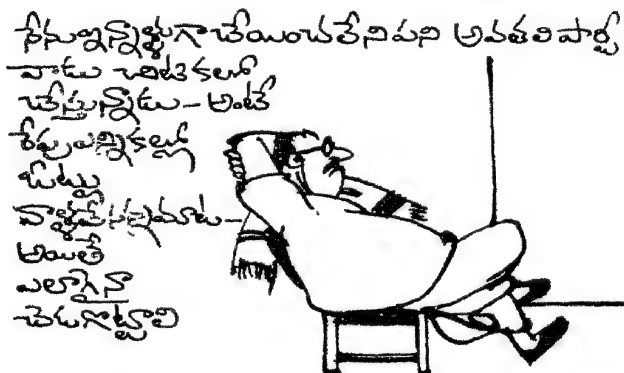 నేను ఇన్నాళ్ళుగా చేయించలేని పని అవతలి పార్టీ
వాడు చిటికలో
చేస్తున్నాడు - అంటే
రేపు ఎన్నికల్లో
ఓట్లు
వాళ్ళవేనన్నమాట -
అయితే
ఎలాగైనా
చెడగొట్టాలి